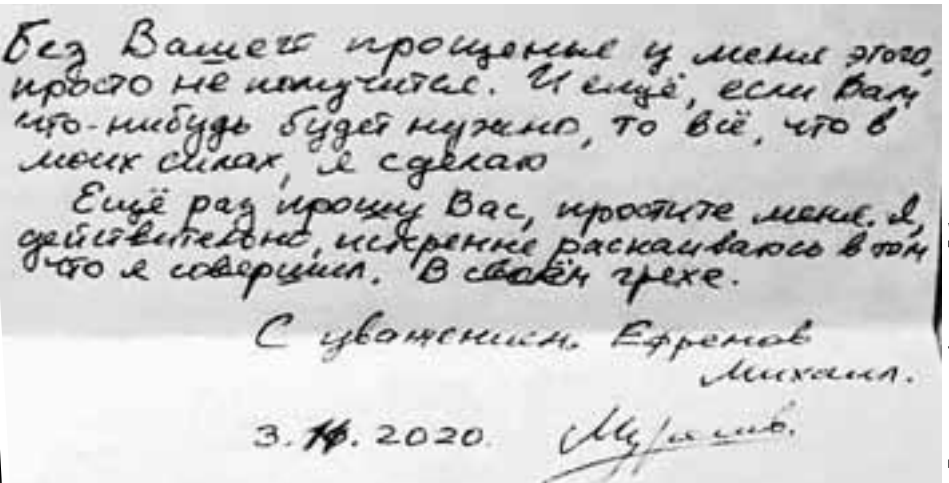 Без Вашего прощенья у меня этого,
просто не получится. И ещё, если Вам
что-нибудь будет нужно, то всё, что в
моих силах, я сделаю
Ещё раз прошу Вас, простите меня. Я,
действительно, искренне раскаиваюсь в том
что я совершил. В своём грехе.
С уважением. Ефремов
Михаил.
3. . 2020.